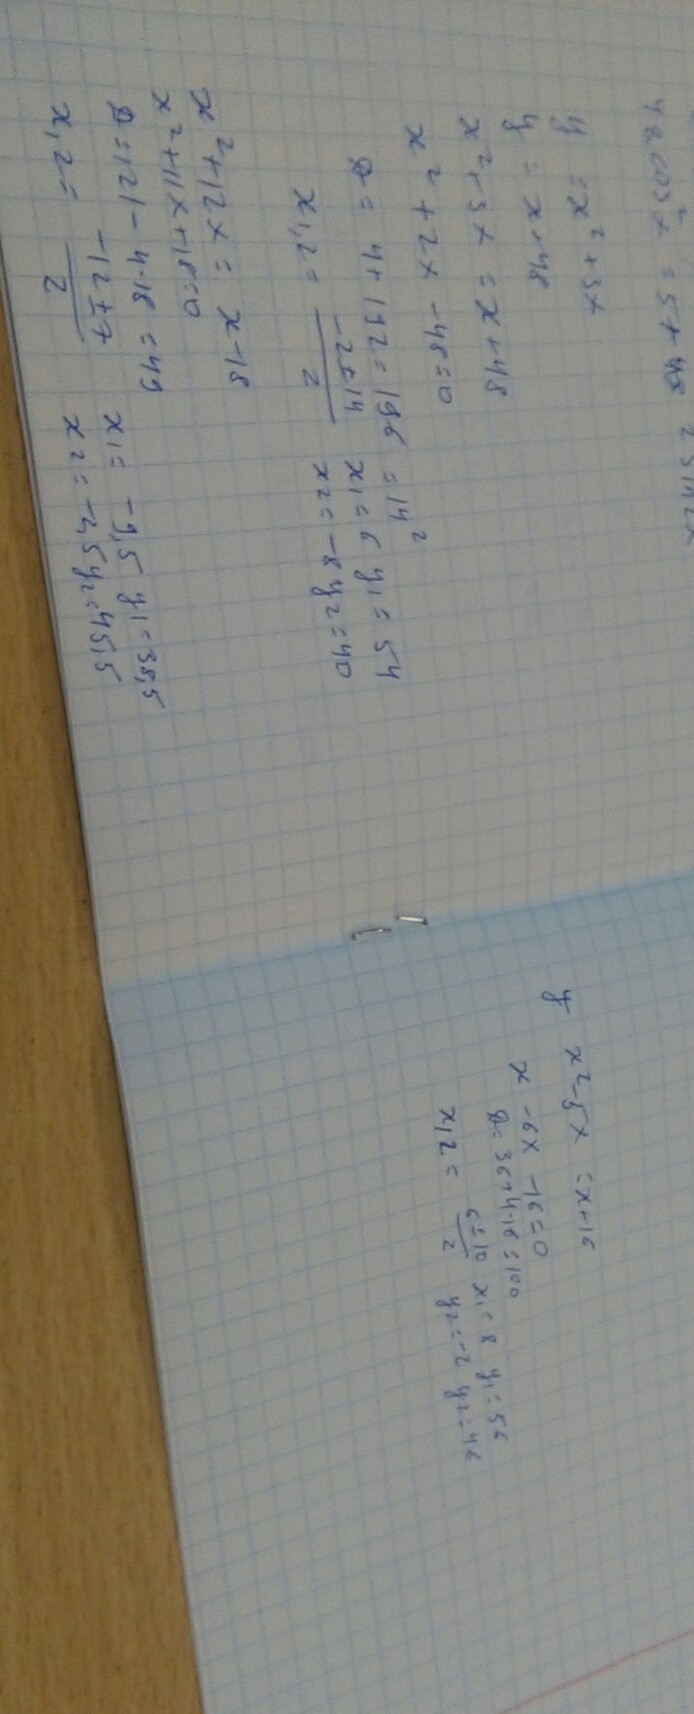 48 cos²x = 5 + 48 2 sin2x
y = x² + 3x
y = x + 48
x² + 3x = x + 48
x² + 2x - 48 = 0
D = 4 + 192 = 196 = 14²
x₁,₂ = (-2 ± 14)/2 x₁ = 6 y₁ = 54
x₂ = -8 y₂ = 40
x² + 12x = x - 18
x² + 11x + 18 = 0
D = 121 - 4·18 = 49
x₁,₂ = (-12 ± 7)/2 x₁ = -9,5 y₁ = 38,5
x₂ = -2,5 y₂ = 45,5
y x² - 5x = x + 16
x - 6x - 16 = 0
D = 36 + 4·16 = 100
x₁,₂ = (6 ± 10)/2 x₁ = 8 y₁ = 56
y₂ = -2 y₂ = 46